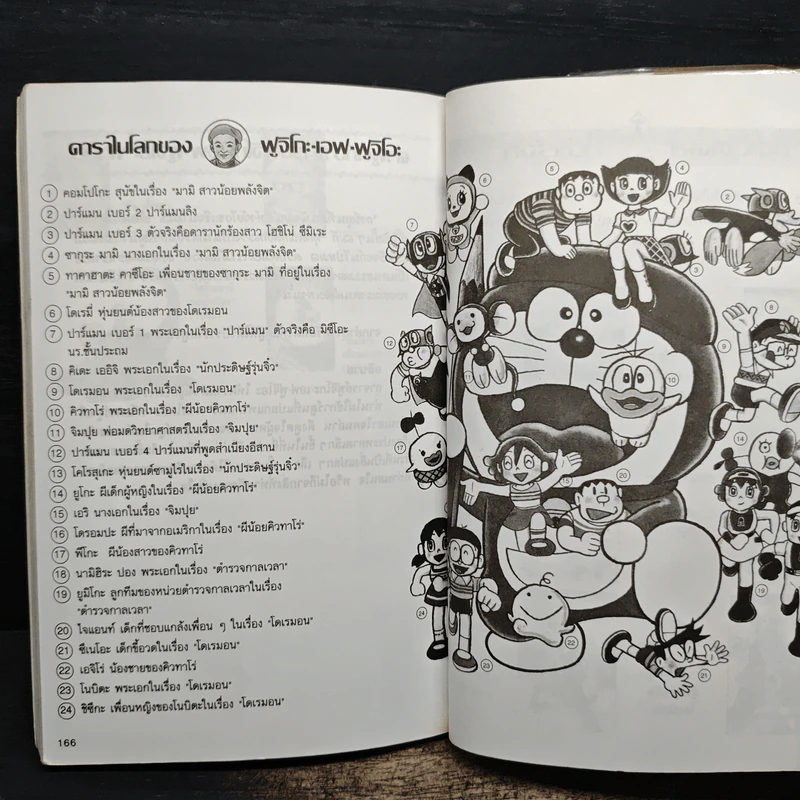 ดาราในโลกของ ฟูจิโกะ·เอฟ·ฟูจิโอะ
① คอมโปโกะ สุนัขในเรื่อง "มามิ สาวน้อยพลังจิต"
② ปาร์แมน เบอร์ 2 ปาร์แมนลิง
③ ปาร์แมน เบอร์ 3 ตัวจริงคือดารานักร้องสาว โฮชิโน่ ซึมิเระ
④ ซากุระ มามิ นางเอกในเรื่อง "มามิ สาวน้อยพลังจิต"
⑤ ทาคาฮาตะ คาซึโอะ เพื่อนชายของซากุระ มามิ ที่อยู่ในเรื่อง
"มามิ สาวน้อยพลังจิต"
⑥ โดเรมี่ หุ่นยนต์น้องสาวของโดเรมอน
⑦ ปาร์แมน เบอร์ 1 พระเอกในเรื่อง "ปาร์แมน" ตัวจริงคือ มิซึโอะ
นร.ชั้นประถม
⑧ คิเตะ เออิจิ พระเอกในเรื่อง "นักประดิษฐ์รุ่นจิ๋ว"
⑨ โดเรมอน พระเอกในเรื่อง "โดเรมอน"
⑩ คิวทาโร่ พระเอกในเรื่อง "ผีน้อยคิวทาโร่"
⑪ จิมปุย พ่อมดวิทยาศาสตร์ในเรื่อง "จิมปุย"
⑫ ปาร์แมน เบอร์ 4 ปาร์แมนที่พูดสำเนียงอีสาน
⑬ โคโรสุเกะ หุ่นยนต์ซามูไรในเรื่อง "นักประดิษฐ์รุ่นจิ๋ว"
⑭ ยูโกะ ผีเด็กผู้หญิงในเรื่อง "ผีน้อยคิวทาโร่"
⑮ เอริ นางเอกในเรื่อง "จิมปุย"
⑯ โดรอมปะ ผีที่มาจากอเมริกาในเรื่อง "ผีน้อยคิวทาโร่"
⑰ พีโกะ ผีน้องสาวของคิวทาโร่
⑱ นามิฮิระ ปอง พระเอกในเรื่อง "ตำรวจกาลเวลา"
⑲ ยูมิโกะ ลูกทีมของหน่วยตำรวจกาลเวลาในเรื่อง
"ตำรวจกาลเวลา"
⑳ ไจแอนท์ เด็กที่ชอบแกล้งเพื่อน ๆ ในเรื่อง "โดเรมอน"
㉑ ซึเนโอะ เด็กขี้อวดในเรื่อง "โดเรมอน"
㉒ เอจิโร่ น้องชายของคิวทาโร่
㉓ โนบิตะ พระเอกในเรื่อง "โดเรมอน"
㉔ ชิซึกะ เพื่อนหญิงของโนบิตะในเรื่อง "โดเรมอน"
166
⑥
⑦
⑫
⑰
㉔
⑤
④
②
③
⑧
⑨
⑩
⑭
⑮
⑳
⑲
㉒
㉓
㉑